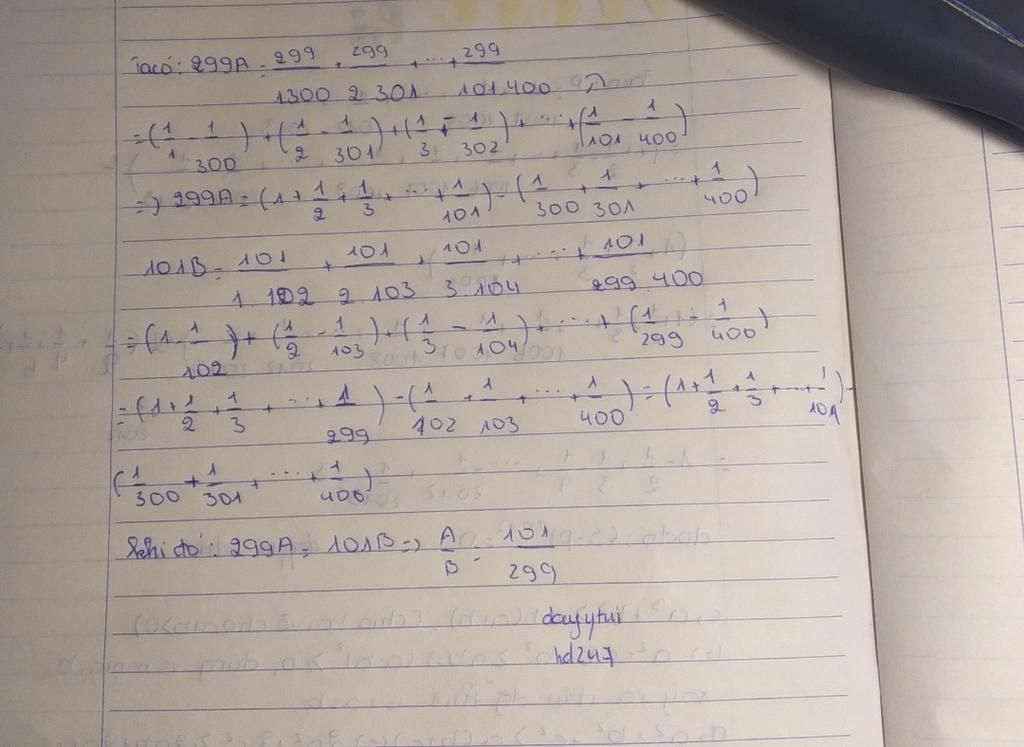 Ta có: 299A = 299/1.300 + 299/2.301 + ... + 299/101.400
= (1/1 - 1/300) + (1/2 - 1/301) + (1/3 - 1/302) + ... + (1/101 - 1/400)
=> 299A = (1 + 1/2 + 1/3 + ... + 1/101) - (1/300 + 1/301 + ... + 1/400)
101B = 101/1.102 + 101/2.103 + 101/3.104 + ... + 101/299.400
= (1 - 1/102) + (1/2 - 1/103) + (1/3 - 1/104) + ... + (1/299 - 1/400)
= (1 + 1/2 + 1/3 + ... + 1/299) - (1/102 + 1/103 + ... + 1/400) = (1 + 1/2 + 1/3 + ... + 1/101) -
(1/300 + 1/301 + ... + 1/400)
Khi đó: 299A = 101B => A/B = 101/299
dayytui
hd247